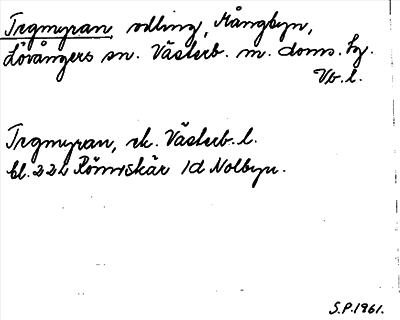 Tegmyran, odling, Mångbyn,
Lövångers sn. Västerb. m. doms. hg.
Vb. l.
Tegmyran, ek. Västerb. l.
bl. 222 Rönnskär 1d Nolbyn.
S.P.1961.